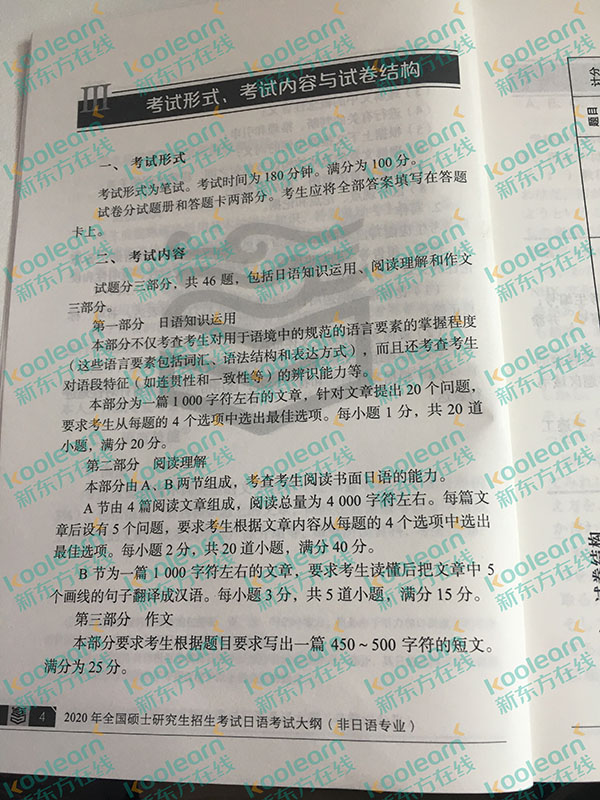 III 考试形式、考试内容与试卷结构
一、考试形式
考试形式为笔试。考试时间为180分钟。满分为100分。
试卷分试题册和答题卡两部分。考生应将全部答案填写在答题
卡上。
二、考试内容
试题分三部分，共46题，包括日语知识运用、阅读理解和作文
三部分。
第一部分 日语知识运用
本部分不仅考查考生对用于语境中的规范的语言要素的掌握程度
（这些语言要素包括词汇、语法结构和表达方式），而且还考查考生
对语段特征（如连贯性和一致性等）的辨识能力等。
本部分为一篇1 000字符左右的文章，针对文章提出20个问题，
要求考生从每题的4个选项中选出最佳选项。每小题1分，共20道
小题，满分20分。
第二部分 阅读理解
本部分由A、B两节组成，考查考生阅读书面日语的能力。
A节由4篇阅读文章组成，阅读总量为4 000字符左右。每篇文
章后设有5个问题，要求考生根据文章内容从每题的4个选项中选出
最佳选项。每小题2分，共20道小题，满分40分。
B节为一篇1 000字符左右的文章，要求考生读懂后把文章中5
个画线的句子翻译成汉语。每小题3分，共5道小题，满分15分。
第三部分 作文
本部分要求考生根据题目要求写出一篇450～500字符的短文。
满分为25分。
4 2020年全国硕士研究生招生考试日语考试大纲（非日语专业）
题目
计分
试卷结构
koolearn
新东方在线